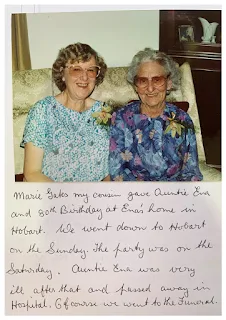 Marie Gates my cousin gave Auntie Ena
and 80th Birthday at Ena's home in
Hobart. We went down to Hobart
on the Sunday. The party was on the
Saturday. Auntie Ena was very
ill after that and passed away in
Hospital. Of course we went to the Funeral.